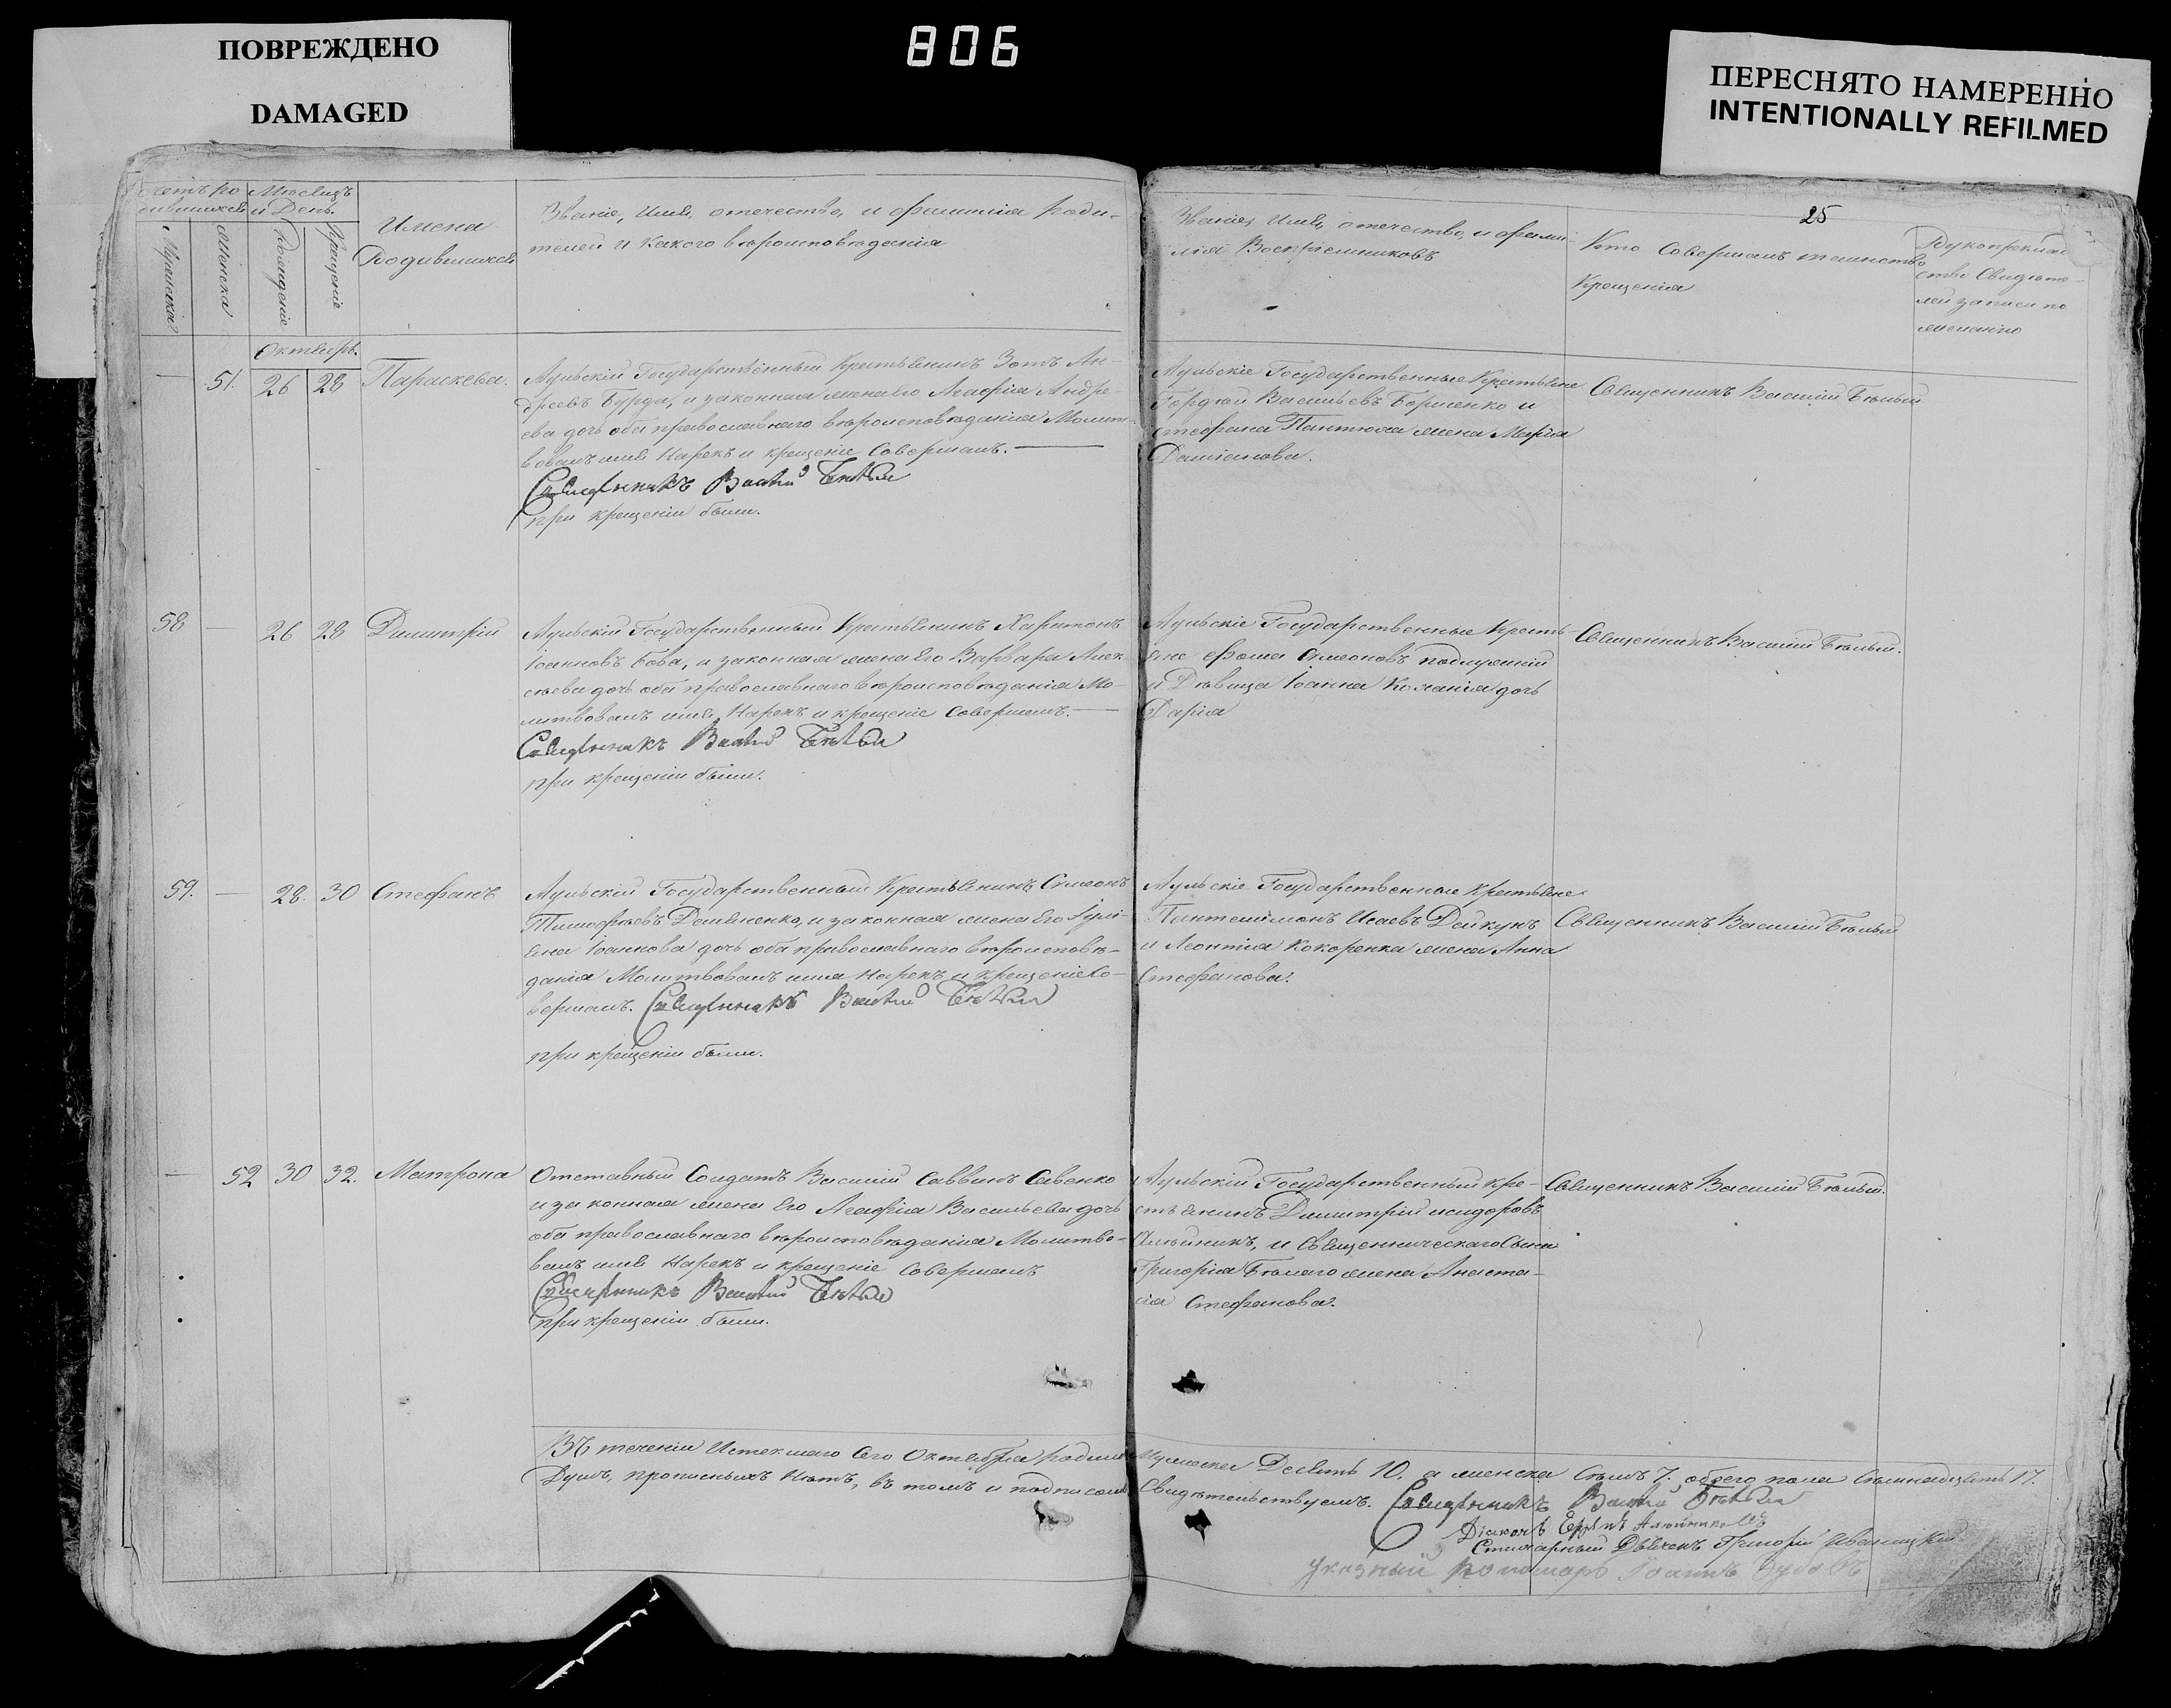 ПОВРЕЖДЕНО
DAMAGED
806
ПЕРЕСНЯТО НАМЕРЕННО
INTENTIONALLY REFILMED
25
Мѣсяцъ
и День.
Мужеска
Женска
Рожденіе
Крещеніе
Имена
Родившихся
Званіе, Имя, отечество, и фамилія Роди-
телей и Какого вѣроисповѣданія
Званіе, Имя, отечество, и фами-
лія Воспріемниковъ
Кто Совершалъ таинство
Крещенія
Рукоприклад
ство Свидѣте-
лей записи по
желанію
Октябрь.
51. 26 28 Параскева.
Аульскій Государственный Крестьянинъ Зотъ Ан-
дреевъ Бурда, и законная жена Его Агафія Андре-
ева дочь оба православнаго вѣроисповѣданія Молит-
вовалъ имя Нарекъ и крещеніе Совершалъ.
Священникъ Василій Бѣлый
при крещеніи были.
Аульскіе Государственные Крестьяне
Гордѣй Васильевъ Борченко и
Стефана Пантюха жена Марія
Даміанова.
Священникъ Василій Бѣлый
58 26 28 Димитрій
Аульскій Государственный Крестьянинъ Харитонъ
Іоанновъ Бова, и законная жена Его Варвара Алек-
сѣева дочь оба православнаго вѣроисповѣданія Мо-
литвовалъ имя Нарекъ и крещеніе Совершалъ.
Священникъ Василій Бѣлый
при крещеніи были.
Аульскіе Государственные Кресть
яне Фома Симеоновъ
и Дѣвица Іоанна дочь
Дарія
Священникъ Василій Бѣлый.
59. 28. 30 Стефанъ
Аульскій Государственный Крестьянинъ Симеонъ
Тимофѣевъ Демяненко, и законная жена Его Іулі-
яна Іоаннова дочь оба православнаго вѣроисповѣ-
данія Молитвовалъ имя Нарекъ и крещеніе Со-
вершалъ. Священникъ Василій Бѣлый
при крещеніи были.
Аульскіе Государственные Крестьяне
Пантелимонъ Исаевъ Дейкунъ
и Леонтія Кокоренка жена Анна
Стефанова.
Священникъ Василій Бѣлый
52 30 32. Матрона
Отставный Солдатъ Василій Саввинъ Савенко
и законная жена Его Агафія Васильева дочь
оба православнаго вѣроисповѣданія Молитво-
валъ имя Нарекъ и крещеніе Совершалъ
Священникъ Василій Бѣлый
при крещеніи были.
Аульскій Государственный Кре-
стьянинъ Димитрій Исидоровъ
Олейникъ, и Священническаго Сына
Григорія Бѣлаго жена Анаста-
сія Стефанова.
Священникъ Василій Бѣлый.
Въ теченіи Истекшаго Сего Октября родилось Мужеска Десять 10. а женска Семь 7. обоего пола Семнадцать 17.
Душъ, пропискныхъ Нѣтъ, въ томъ и подписомъ Свидѣтельствуемъ. Священникъ Василій Бѣлый
Діаконъ
Стихарный Дьячекъ Григорій
Указный Пономарь Іоаннъ Зубовъ